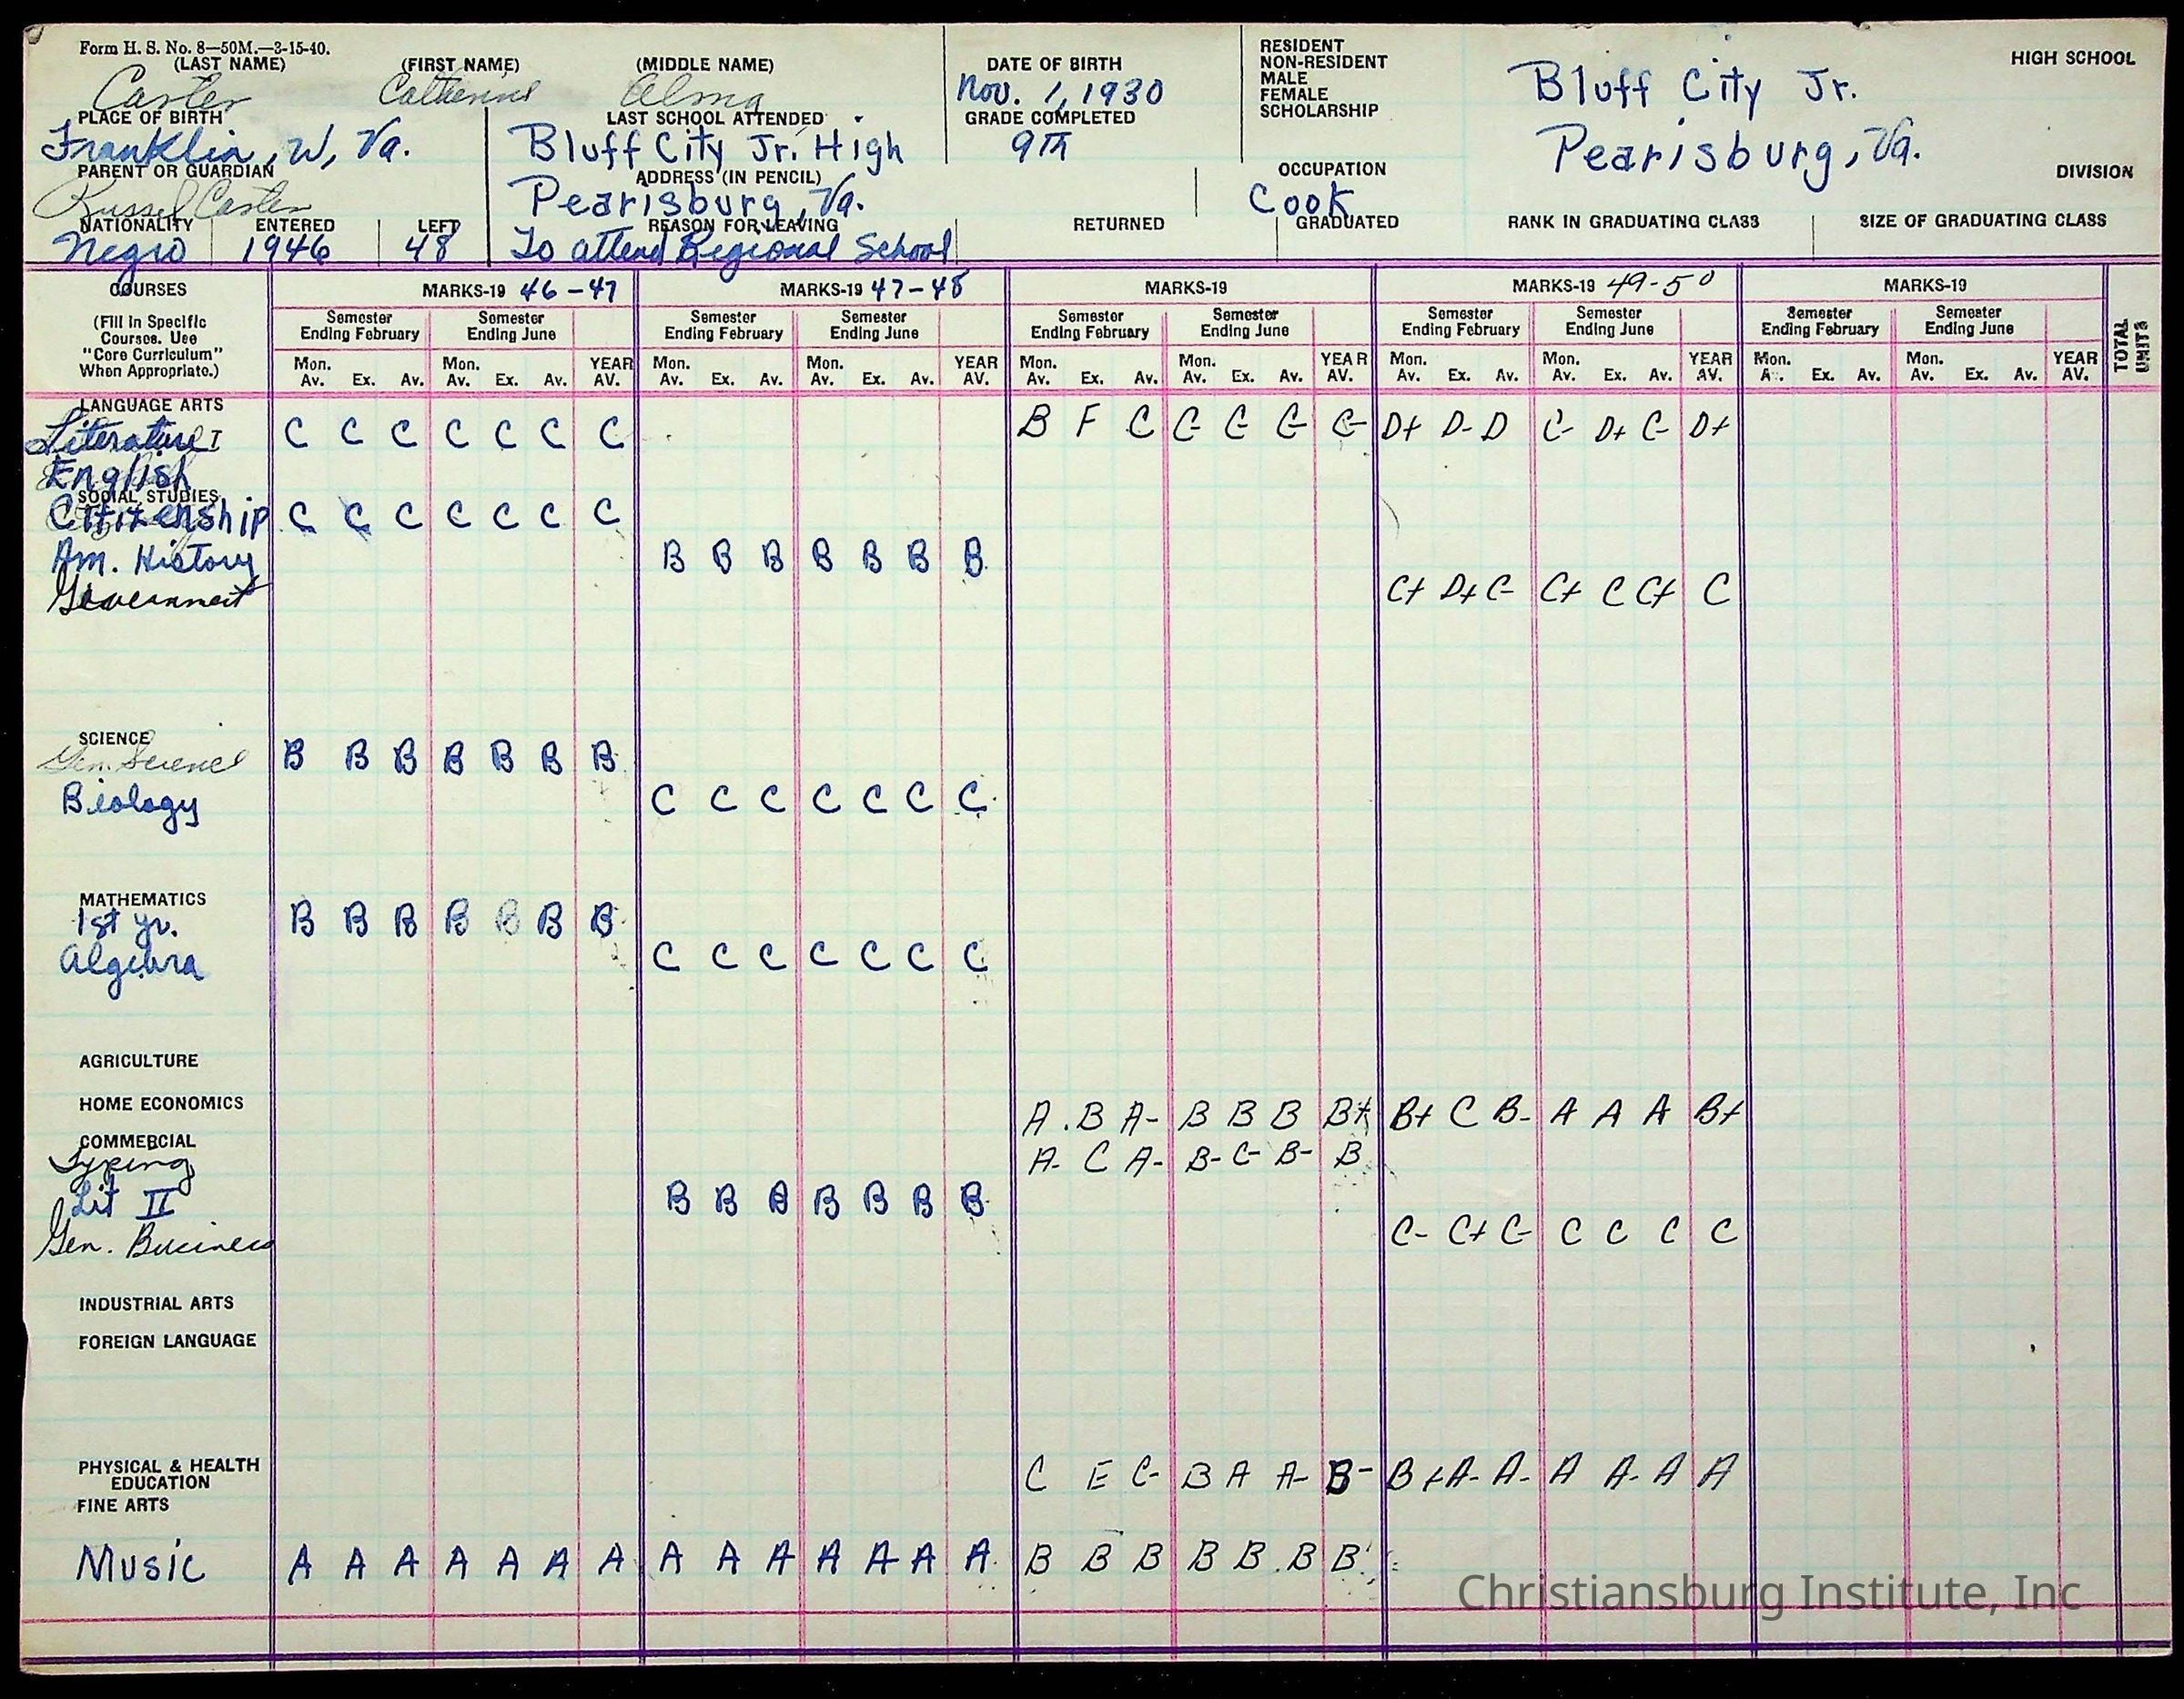 Form H. S. No. 8—50M.—3-15-40.
(LAST NAME) (FIRST NAME) (MIDDLE NAME) DATE OF BIRTH RESIDENT HIGH SCHOOL
NON-RESIDENT
MALE
FEMALE
SCHOLARSHIP
Carter Catherine Alma Nov. 1, 1930 Bluff City Jr.
PLACE OF BIRTH LAST SCHOOL ATTENDED GRADE COMPLETED
Franklin, W, Va. Bluff City Jr. High 9th Pearisburg, Va.
PARENT OR GUARDIAN ADDRESS (IN PENCIL) OCCUPATION DIVISION
Russel Carter Pearisburg, Va. Cook
NATIONALITY ENTERED LEFT REASON FOR LEAVING RETURNED GRADUATED RANK IN GRADUATING CLASS SIZE OF GRADUATING CLASS
Negro 1946 48 To attend Regional School
COURSES MARKS-19 46-47 MARKS-19 47-48 MARKS-19 MARKS-19 49-50 MARKS-19
(Fill in Specific Courses. Use "Core Curriculum" When Appropriate.)
Semester Ending February Semester Ending June Semester Ending February Semester Ending June Semester Ending February Semester Ending June Semester Ending February Semester Ending June Semester Ending February Semester Ending June TOTAL UNITS
Mon. Av. Ex. Av. Mon. Av. Ex. Av. YEAR AV. Mon. Av. Ex. Av. Mon. Av. Ex. Av. YEAR AV. Mon. Av. Ex. Av. Mon. Av. Ex. Av. YEAR AV. Mon. Av. Ex. Av. Mon. Av. Ex. Av. YEAR AV. Mon. A. Ex. Av. Mon. Av. Ex. Av. YEAR AV.
LANGUAGE ARTS
Literature I C C C C C C C B F C C- C C- C- D+ D- D C- D+ C- D+
English
SOCIAL STUDIES
Citizenship C C C C C C C
Am. History B B B B B B B
Government C+ D+ C- C+ C C+ C
SCIENCE
Gen. Science B B B B B B B
Biology C C C C C C C
MATHEMATICS
1st yr. B B B B B B B
Algebra C C C C C C C
AGRICULTURE
HOME ECONOMICS A B A- B B B B+ B+ C B- A A A B+
COMMERCIAL
Typing A- C A- B- C- B- B
Lit II B B B B B B B
Gen. Business C- C+ C- C C C C
INDUSTRIAL ARTS
FOREIGN LANGUAGE
PHYSICAL & HEALTH EDUCATION C E C- B A A- B- B+ A- A- A A- A A
FINE ARTS
Music A A A A A A A A A A A A A A B B B B B B B
Christiansburg Institute, Inc